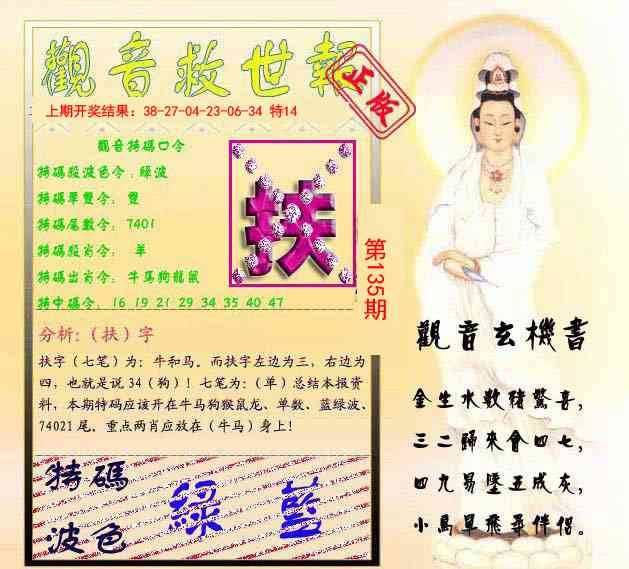 觀音救世報
正版
上期开奖结果：38-27-04-23-06-34 特14
觀音特碼口令
特碼段波色令：绿波
特碼單雙令：雙
特碼尾數令：7401
特碼段肖令：單
特碼出肖令：牛马狗龍鼠
特中碼令：16 19 21 29 34 35 40 47
扶
第135期
分析：（扶）字
扶字（七笔）为：牛和马。而扶字左边为三，右边为
四，也就是说34（狗）！七笔为：（单）总结本报资
料，本期特码应该开在牛马狗猴鼠龙、单数、蓝绿波、
74021尾。重点两肖应放在（牛马）身上！
特碼
波色
綠 藍
觀音玄機書
金生水數豬驚喜，
三二歸來會四七，
四九易墜五成灰，
小鳥早飛尋伴侶。